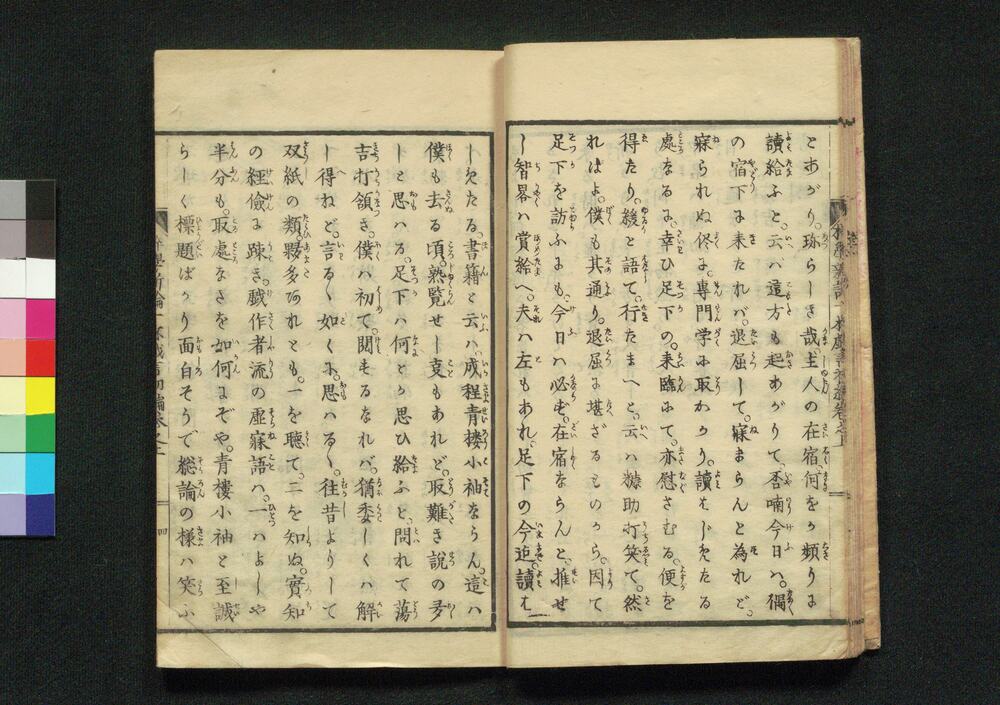 とあがり。珎らしき哉。主人の在宿。何をか頻りに
讀給ふと。云バ這方も起あがりて。否喃今日ハ。獨
の宿下に来たれバ。退屈して。寐まらんと為れど。
寐られぬ侭に。專門学に取かゝり。讀はじめたる
處なるに。幸ひ足下の。来臨にて。亦慰さむる。便を
得たり。緩と語て。行たまへと。云ハ糠助打笑て。然
ればよ。僕も其通り。退屈に堪ざるものから。因て
足下を訪ふにも。今日ハ必ず。在宿ならんと。推せ
し智畧ハ賞給へ。夫ハ左もあれ。足下の今迄。讀む
しめたる。書籍と云ハ。成程青楼小袖ならん。這ハ
僕も去る頃。熟覧せし支もあれど。取難き説の多
しと思ハる。足下ハ何とか思ひ給ふと。問れて蕩
吉打領き。僕ハ初て。閲するなれバ。猶委しくハ解
し得ねど。言るゝ如くに。思ハるゝ。往昔よりして
双紙の類。夥多あれとも。一を聴て。二を知ぬ。實知
の經儉に疎き。戯作者流の虚寐語ハ。一ハよしや
半分も。取處なきを如何にぞや。青樓小袖と至誠
らしく標題ばかり面白そうで。総論の様ハ笑ふ
四